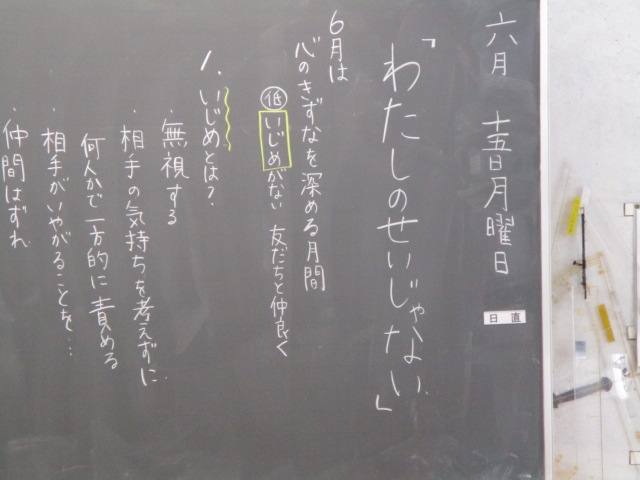 六月 十五日月曜日
日直
「わたしのせいじゃない」
6月は
心のきずなを深める月間
低 いじめがない 友だちと仲良く
1.いじめとは?
・無視する
・相手の気持ちを考えずに
何人かで一方的に責める
・相手がいやがることを…
・仲間はずれ